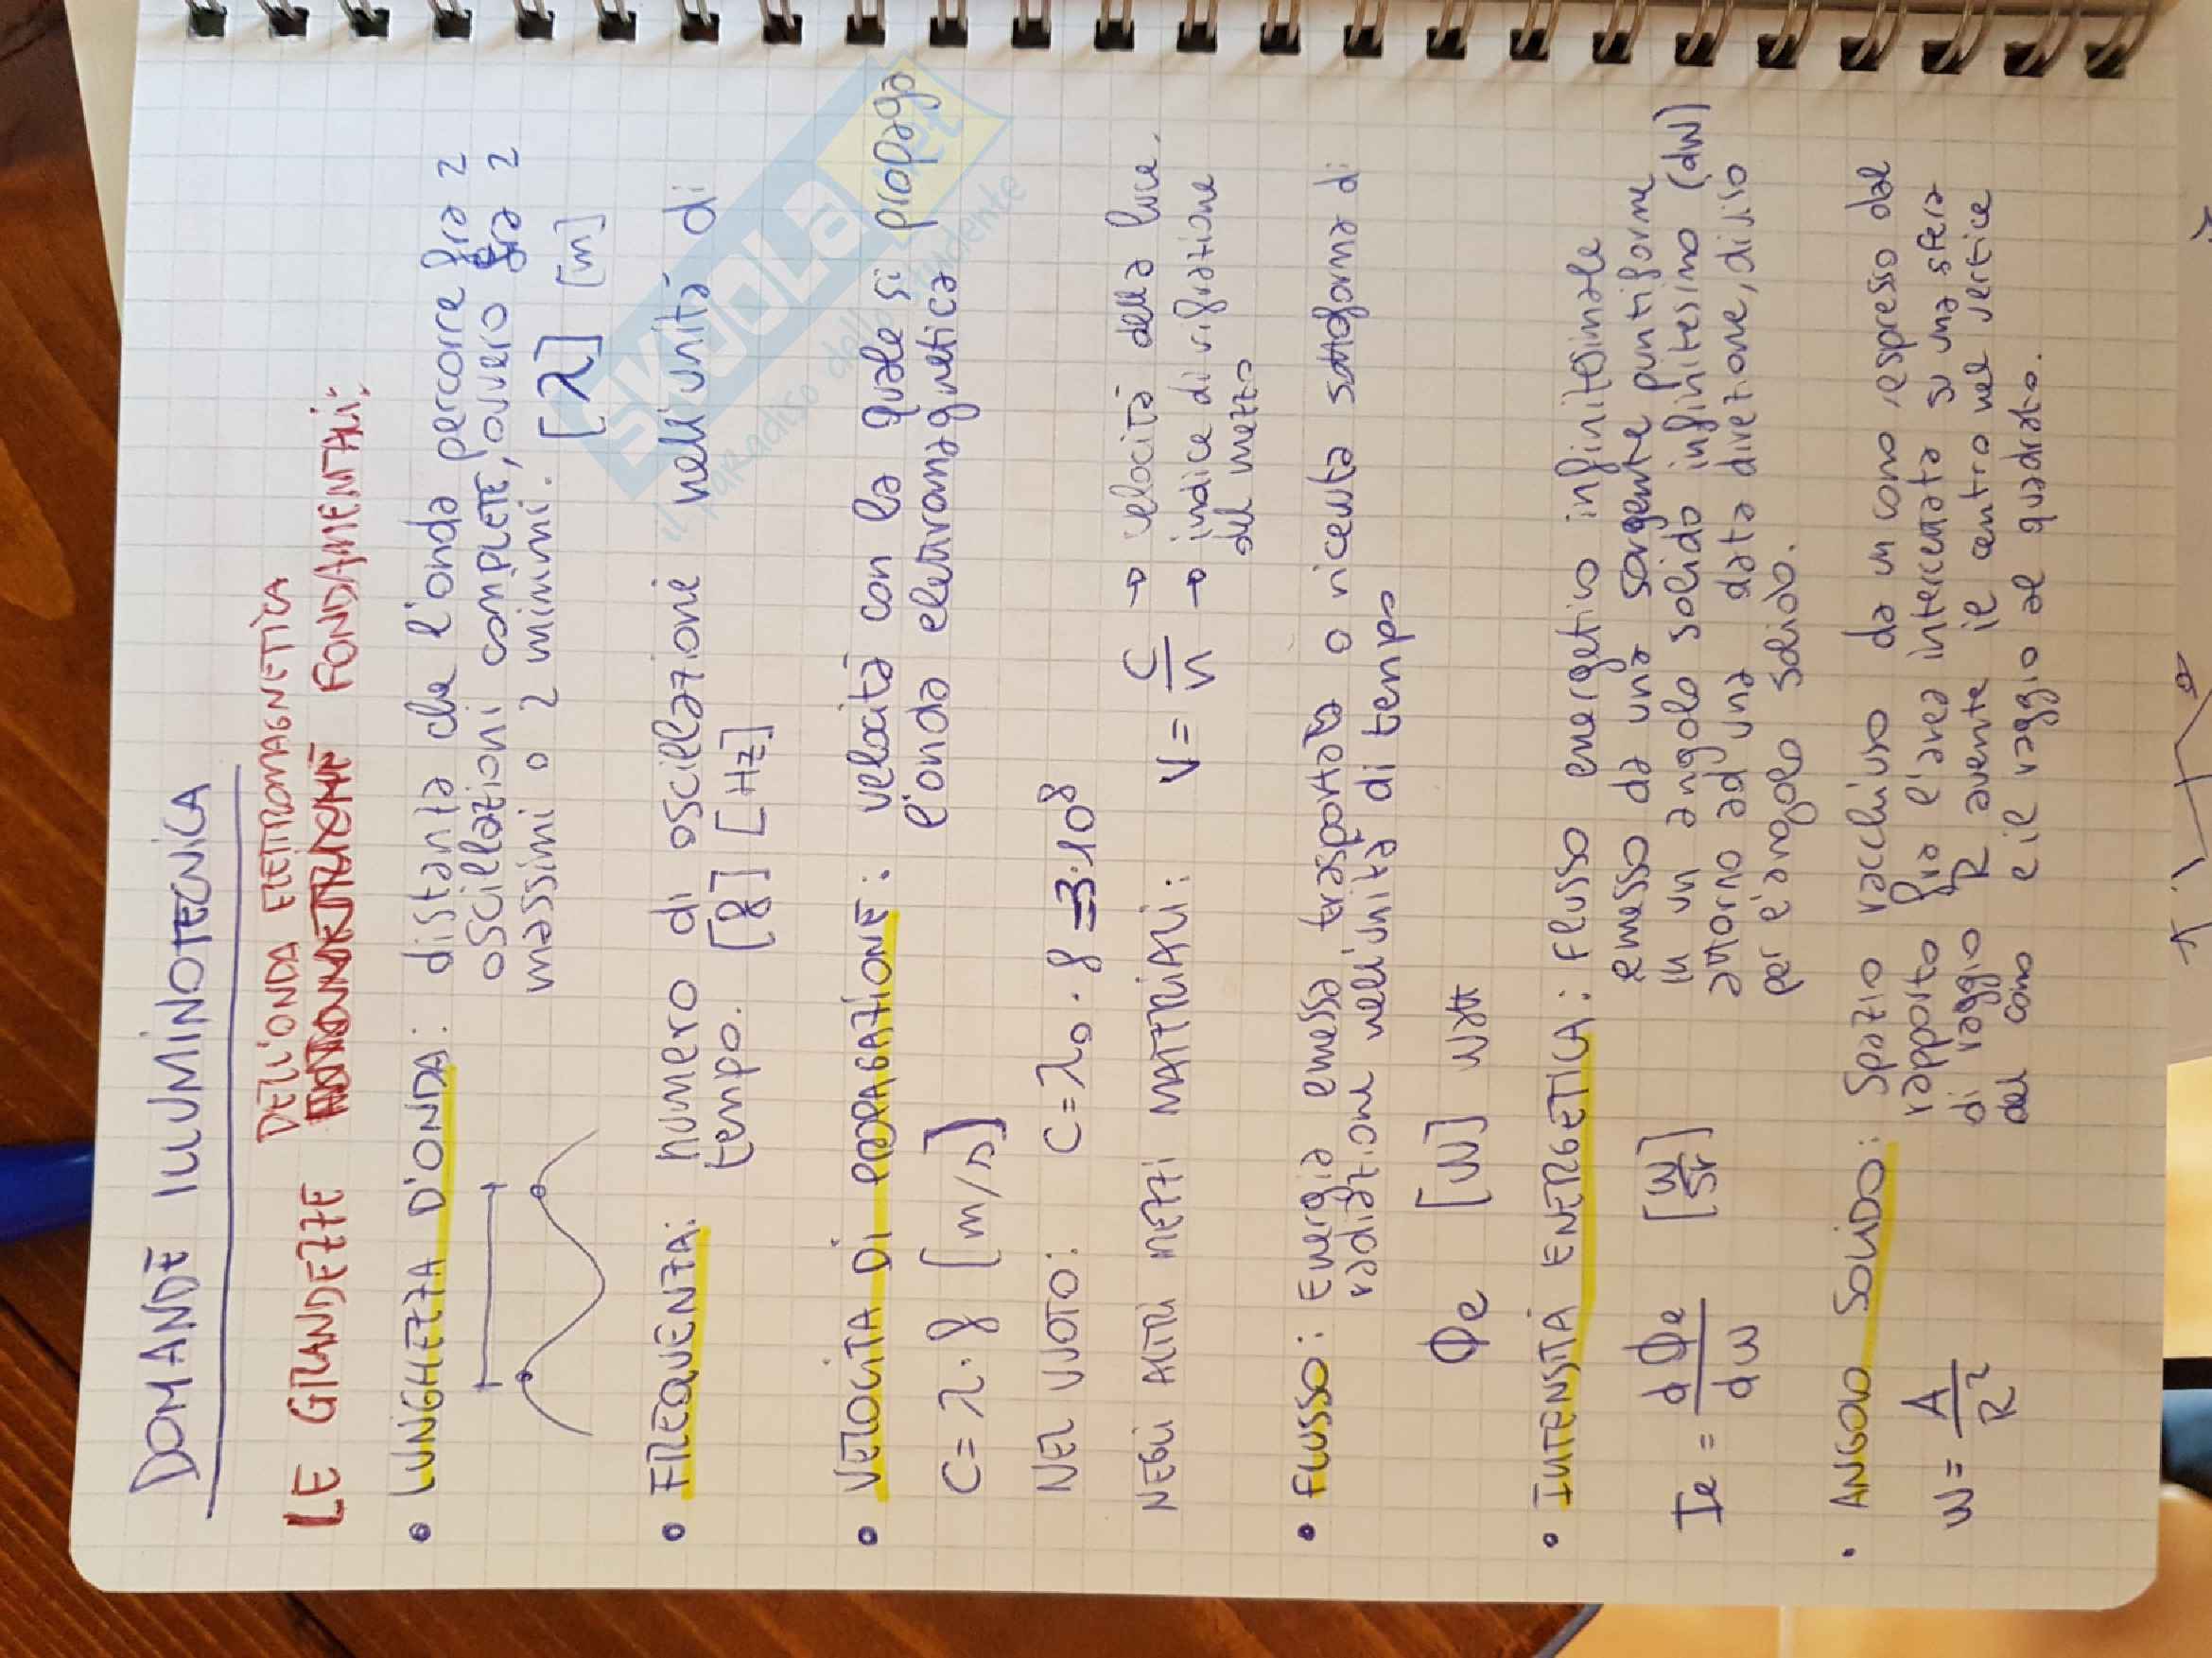 DOMANDE ILLUMINOTECNICA
DELL'ONDA ELETTROMAGNETICA
LE GRANDEZZE FONDAMENTALI:
• LUNGHEZZA D'ONDA: distanza che l'onda percorre fra 2
oscillazioni COMPLETE, ovvero fra 2
massimi o 2 minimi. [λ] [m]
• FREQUENZA: numero di oscillazione nell'unità di
tempo. [f] [Hz]
• VELOCITA DI PROPAGAZIONE: velocità con la quale si propaga
l'onda elettromagnetica
C = λ · f [m/s]
NEL VUOTO: C = λ₀ · f = 3·10⁸
NEGLI ALTRI MEZZI MATERIALI: V = C/n → velocità della luce.
→ indice di rifrazione
del mezzo
• FLUSSO: Energia emessa trasportata o ricevuta sottoforma di
radiazione nell'unità di tempo
Φe [W] Watt
• INTENSITÀ ENERGETICA: Flusso energetico infinitesimale
emesso da una sorgente puntiforme
in un angolo solido infinitesimo (dw)
attorno ad una data direzione, diviso
per l'angolo solido.
Ie = dΦe/dw [W/sr]
• ANGOLO SOLIDO: Spazio racchiuso da un cono, espresso dal
rapporto fra l'area intercettata su una sfera
di raggio R avente il centro nel vertice
del cono e il raggio al quadrato.
w = A/R²
SKUOLA.net
il paradiso dello studente